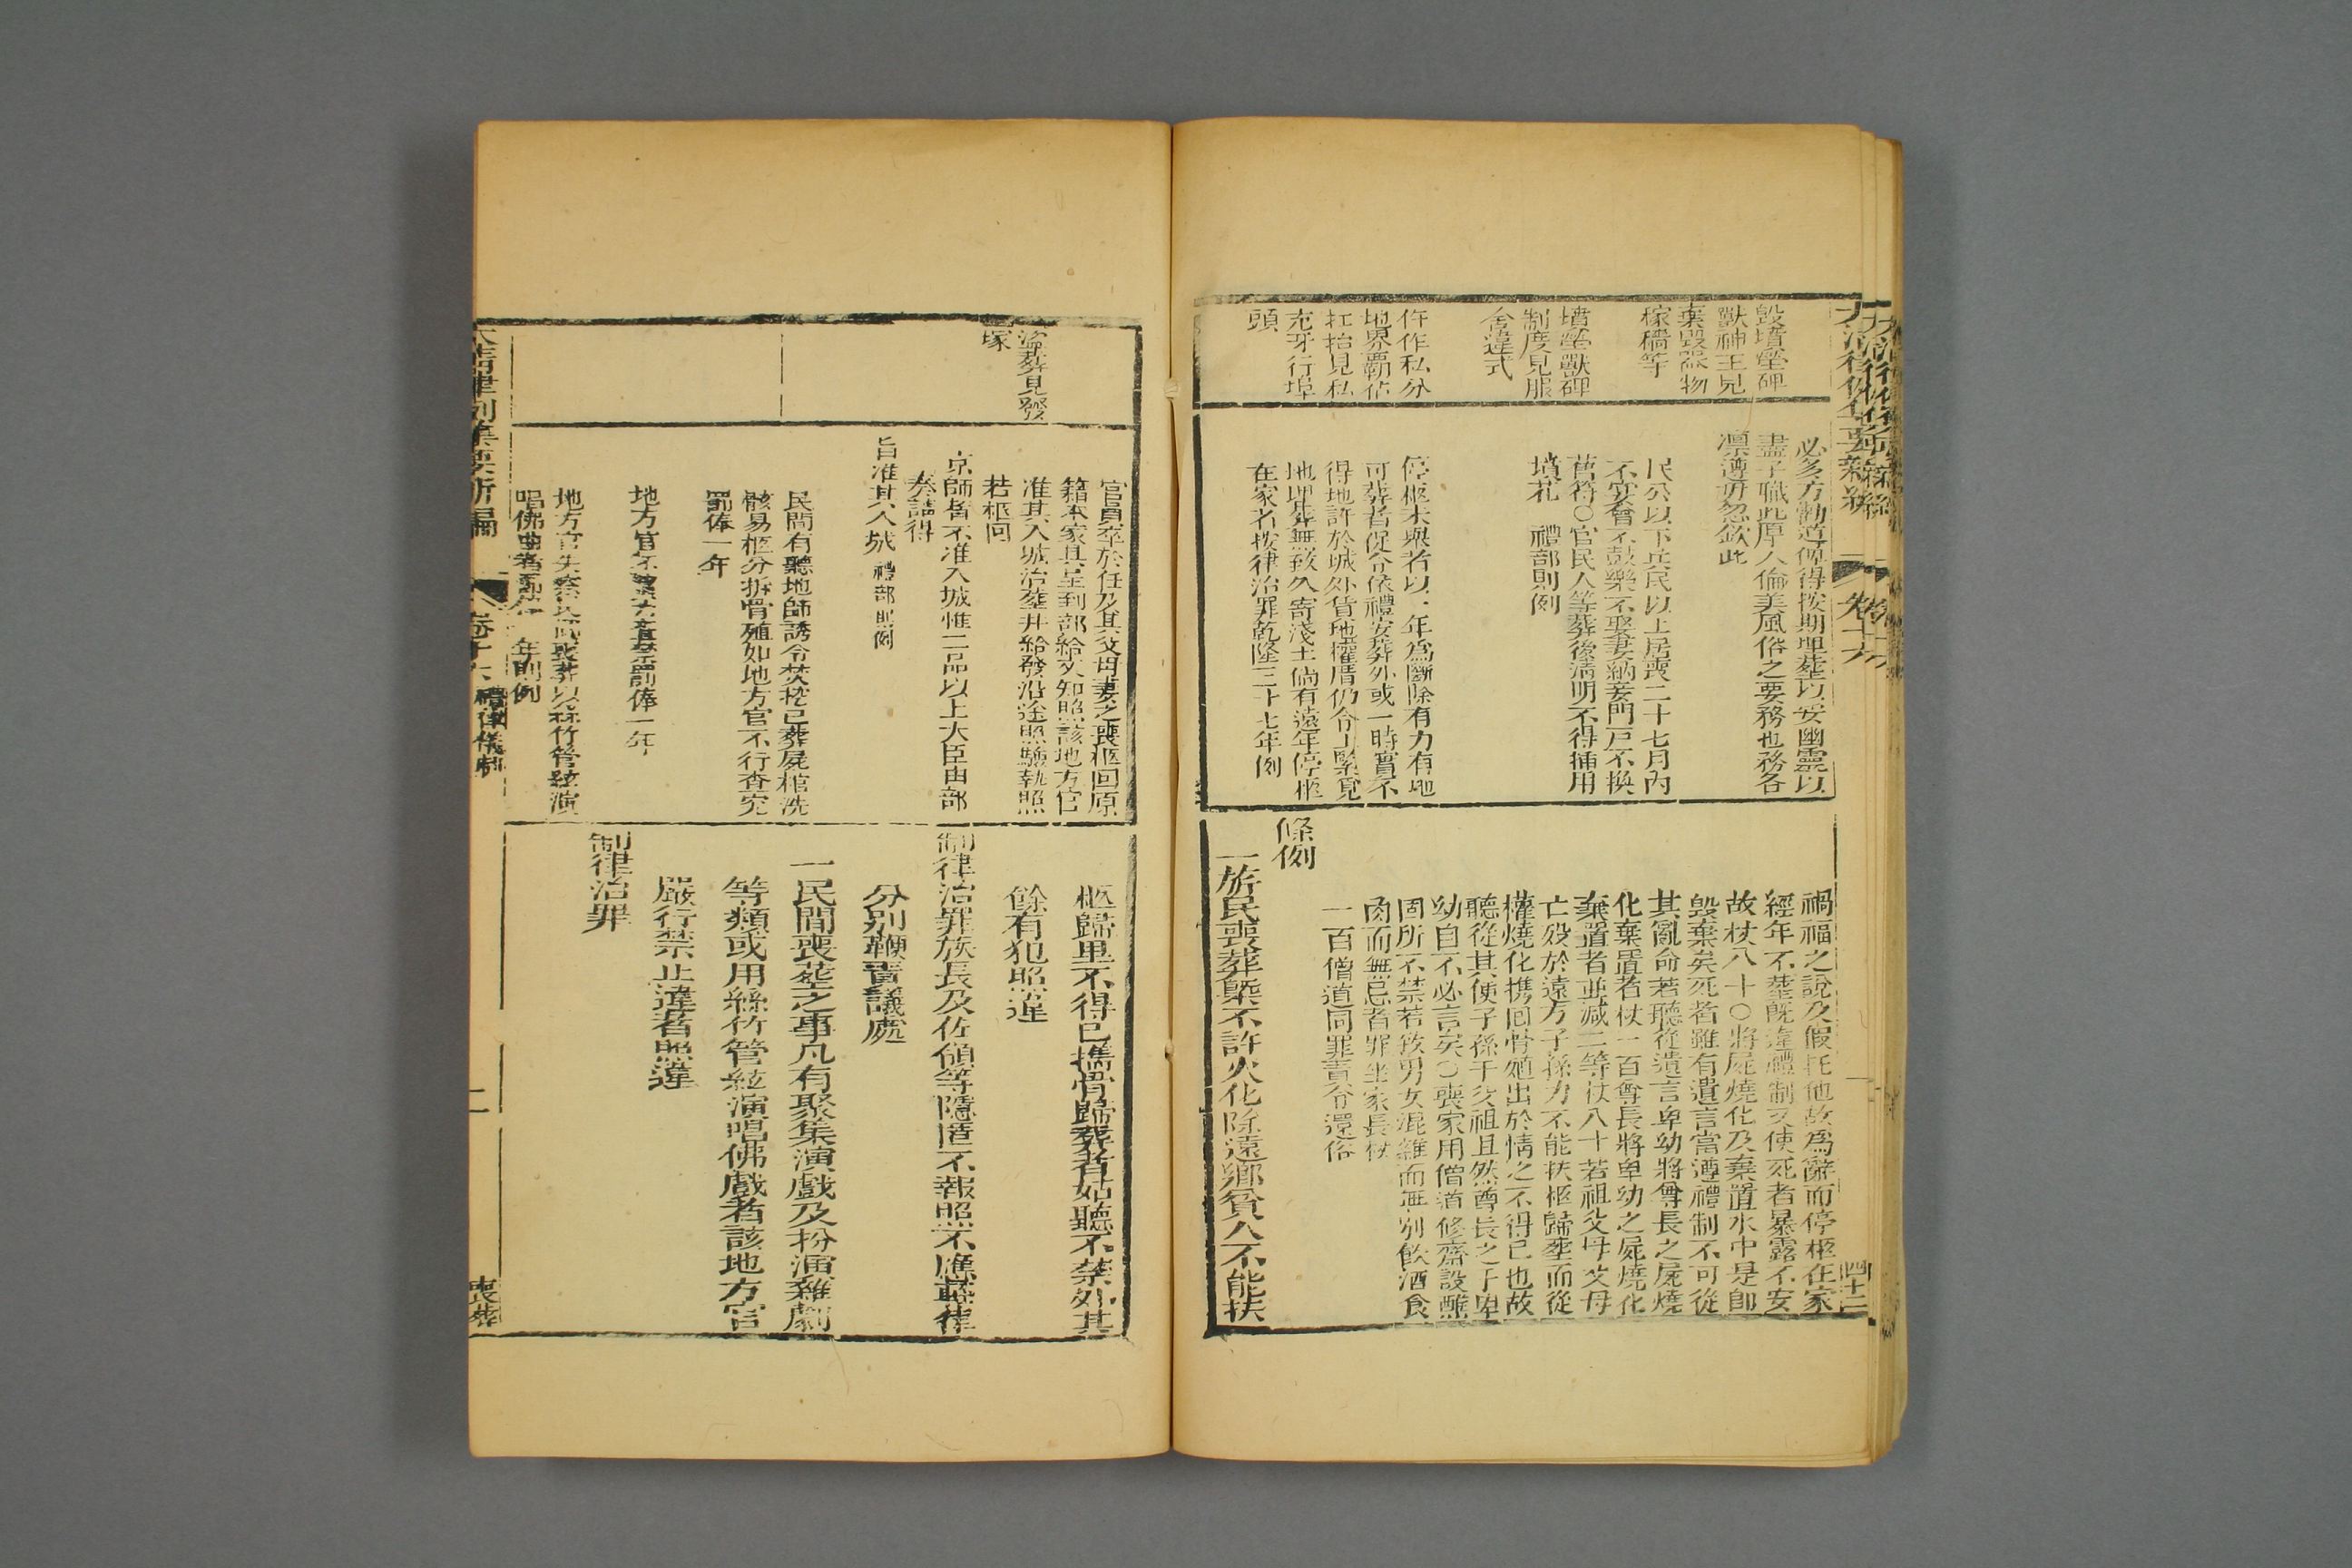 毀墳塋碑
獸神主見
棄毀器物
稼穡等
墳塋獸碑
制度見服
舍違式
仵作私分
地界覇佔
扛抬見私
充牙行埠
頭
必多方勸導俾得按期埋葬以安幽靈以
盡子職此厚人倫美風俗之要務也務各
凛遵毋忽欽此
民公以下兵民以上居喪二十七月內
不宴會不鼓樂不娶妻納妾門戶不換
舊符〇官民人等葬後淸明不得插用
墳花　禮部則例
停柩未舉者以一年為斷除有力有地
可葬者促令依禮安葬外或一時實不
得地許於城外貨地權厝仍令上緊覓
地埋葬無致久寄淺土倘有遠年停柩
在家者按律治罪乾隆三十七年例
禍福之說及假托他故爲辭而停柩在家
經年不葬既違禮制又使死者暴露不安
故杖八十〇將屍燒化及棄置水中是卽
毀棄矣死者雖有遺言當遵禮制不可從
其亂命若聽從遺言卑幼將尊長之屍燒
化棄置者杖一百尊長將卑幼之屍燒化
棄置者並减二等杖八十若祖父母父母
亡殁於遠方子孫力不能扶柩歸塟而從
權燒化携囘骨殖出於情之不得已也故
聽從其便子孫于父祖且然尊長之于卑
幼自不必言矣〇喪家用僧道修齋設醮
固所不禁若致男女混雜而無別飲酒食
肉而無忌者罪坐家長杖
一百僧道同罪責令還俗
條例
一旂民喪葬槩不許火化除遠鄉貧人不能扶
大清律例彙纂要新編
卷十六
四十二
盜葬見發
塚
官員卒於任及其父母妻之喪柩回原
籍本家具呈到部給文知照該地方官
准其入城治塟幷給發沿途照驗執照
若柩回
京師皆不准入城惟二品以上大臣由部
奏請得
旨准其入城　禮部則例
民間有聽地師誘令焚挖已葬屍棺洗
骸易柩分拆骨殖如地方官不行查究
罰俸一年
地方官不禁罰俸一年
地方官失察民間喪葬以絲竹管絃演
唱佛曲者罰俸一年則例
柩歸里不得已攜骨歸葬者姑聽不禁外其
餘有犯照違
制律治罪族長及佐領等隱匿不報照不應輕律
分別鞭責議處
一民間喪塟之事凡有聚集演戲及扮演雜劇
等類或用絲竹管絃演唱佛戲者該地方官
嚴行禁止違者照違
制律治罪
大淸律例彙纂要新編
卷十六
禮律儀制
喪葬